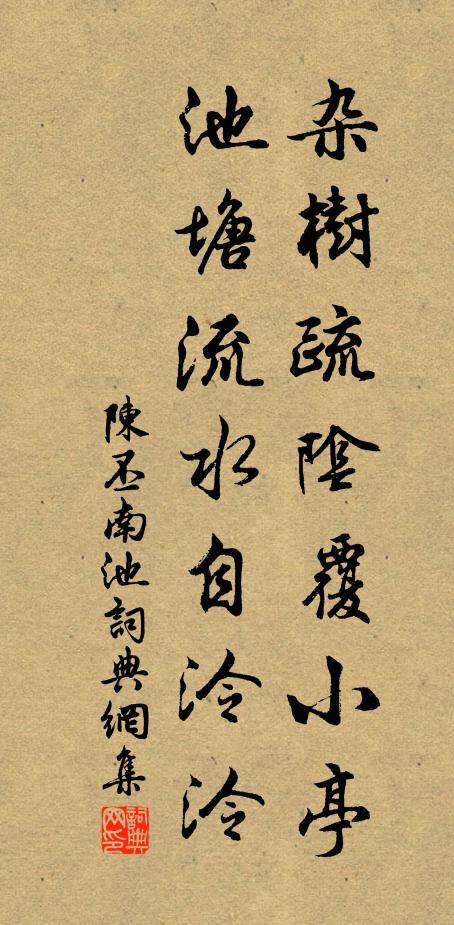 杂樹疏陰覆小亭
池塘流水自泠泠
陳丕南池詞典網集
詞典網印